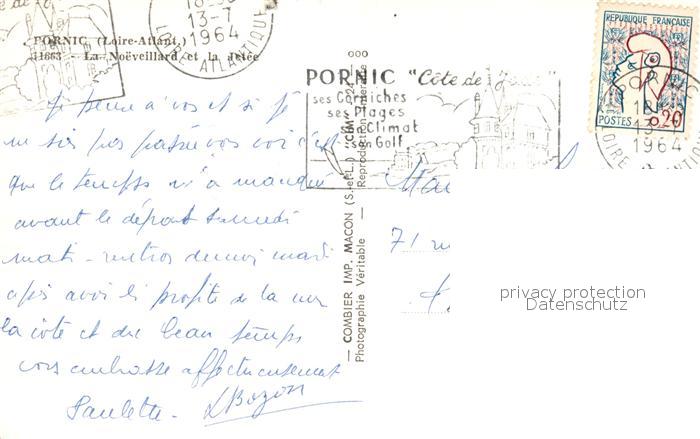 18
13-7
1964
LOIRE ATLANTIQUE
PORNIC (Loire-Atlant.)
11663 - La Noëveillard et la Jetée
PORNIC "Côte de Jade"
ses Corniches
ses Plages
son Climat
son Golf
REPUBLIQUE FRANÇAISE
POSTES 0,20
PORNIC
18
13-7
1964
LOIRE ATLANTIQUE
COMBIER IMP. MACON (S.-et-L.) "CIM"
Photographie Véritable - Reproduction Interdite
Je pense à vos et si je
ne suis pas passée vos voir c'est
que le temps m'a manqué
avant le départ samedi
matin - rentrons mardi
après avoir profité de la mer
la côte et du beau temps
vos embrasse affectueusement
Paulette - LBozon
71
privacy protection
Datenschutz